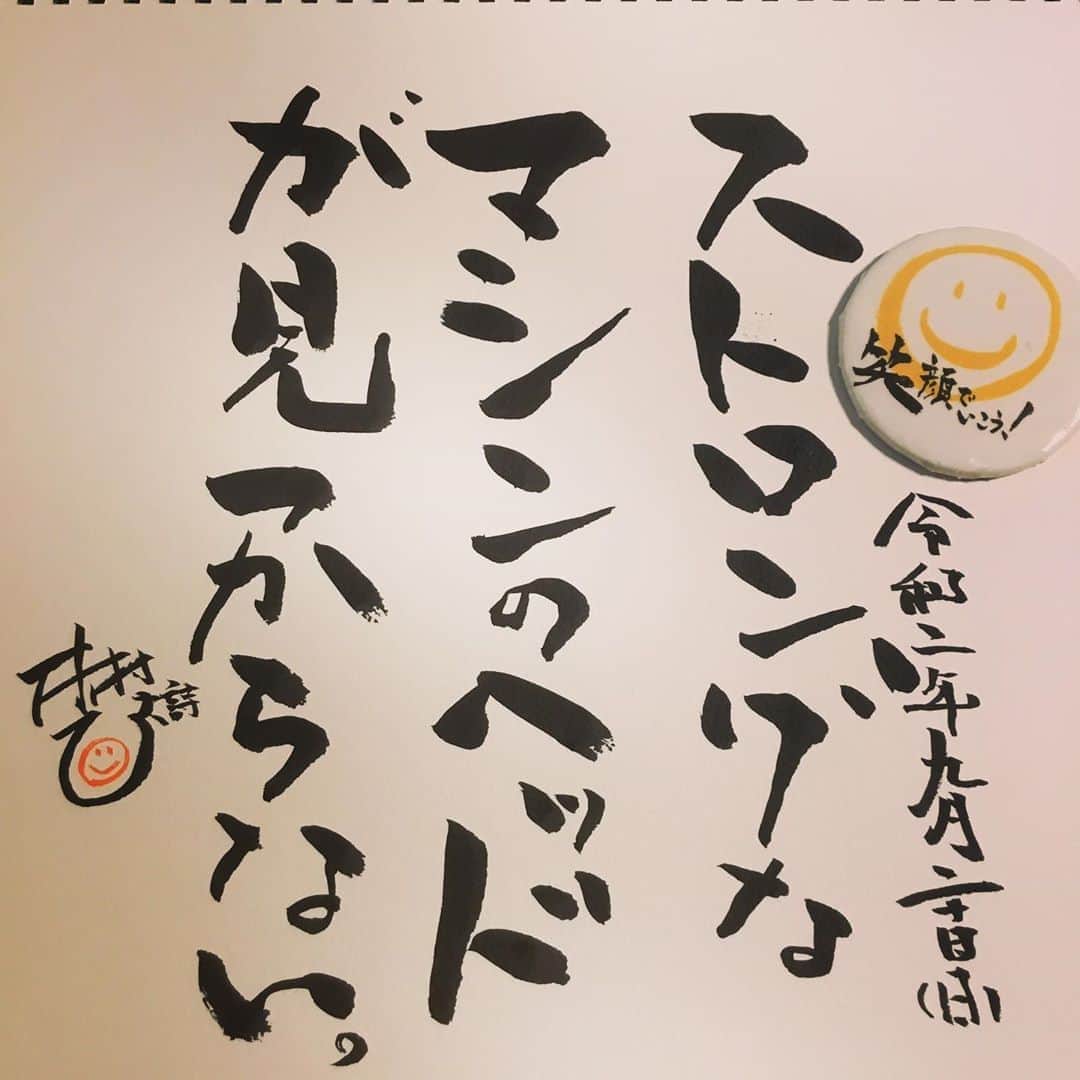 笑顔でいこう!
令和二年九月二十日(日)
ストロングな
マシンのヘッド
が見つからない。